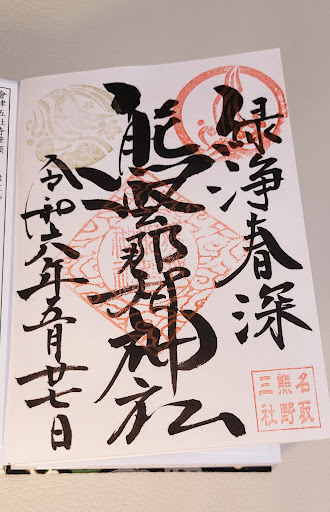 緑浄春深
熊野那智神社
令和六年五月廿七日
名取
熊野
三社